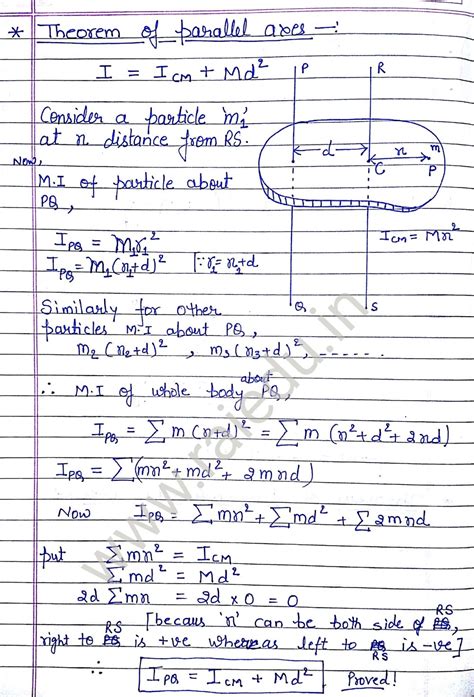 * Theorem of parallel axes :-
I = I_CM + Md²
Consider a particle 'm₁'
at x distance from RS.
Now,
M.I of particle about
PQ,
I_PQ = m₁r₁²
I_PQ = m₁(x₁+d)² [∵ r₁ = x₁+d
P
R
d
x
m
C
P
I_CM = Mx²
Q
S
Similarly for other
particles M.I about PQ,
m₂(x₂+d)² , m₃(x₃+d)², ------
∴ M.I of whole body about PQ,
I_PQ = ∑ m(x+d)² = ∑ m (x²+d²+2xd)
I_PQ = ∑(mx²+md²+ 2mxd)
Now I_PQ = ∑mx² + ∑md² + ∑2mxd
put ∑mx² = I_CM
∑md² = Md²
2d ∑mx = 2d × 0 = 0
[becaus 'x' can be both side of RS,
right to RS is +ve whereas left to RS is -ve]
∴ I_PQ = I_CM + Md² Proved!
www.raiedu.in